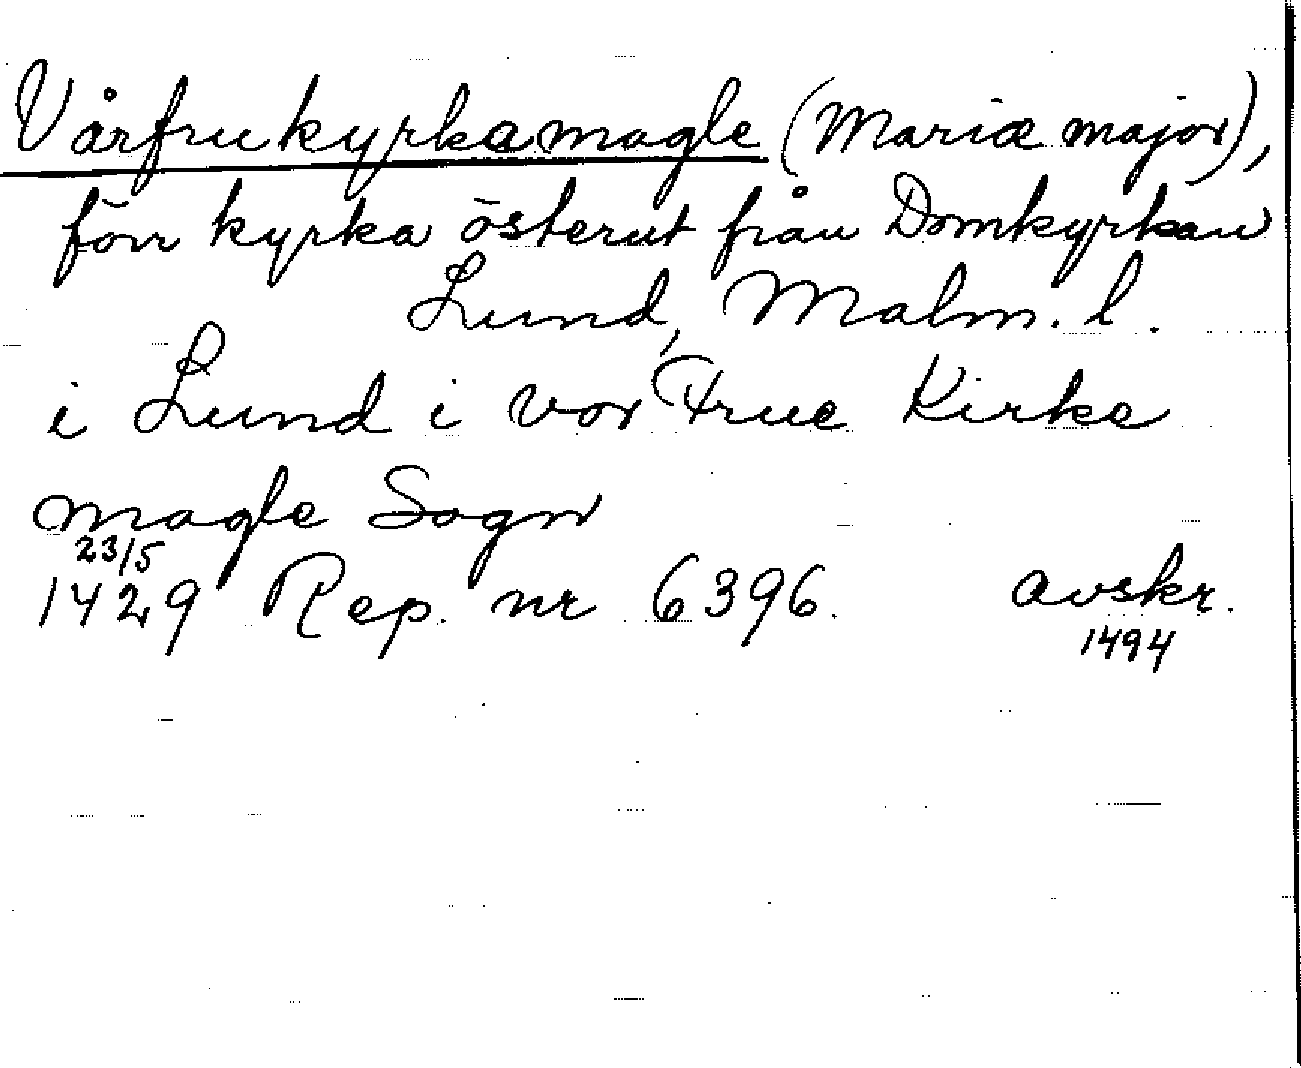 Vårfrukyrkamagle (Mariæ major),
förr kyrka österut från Domkyrkan
Lund, Malm. l.
i Lund i vor Frue Kirke
magle Sogn
23/5
1429 Rep. nr 6396. avskr.
1494